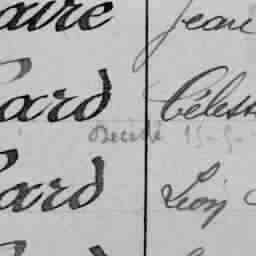 aire Jean
ard Célest
Décédé 15-5-
ard Léon